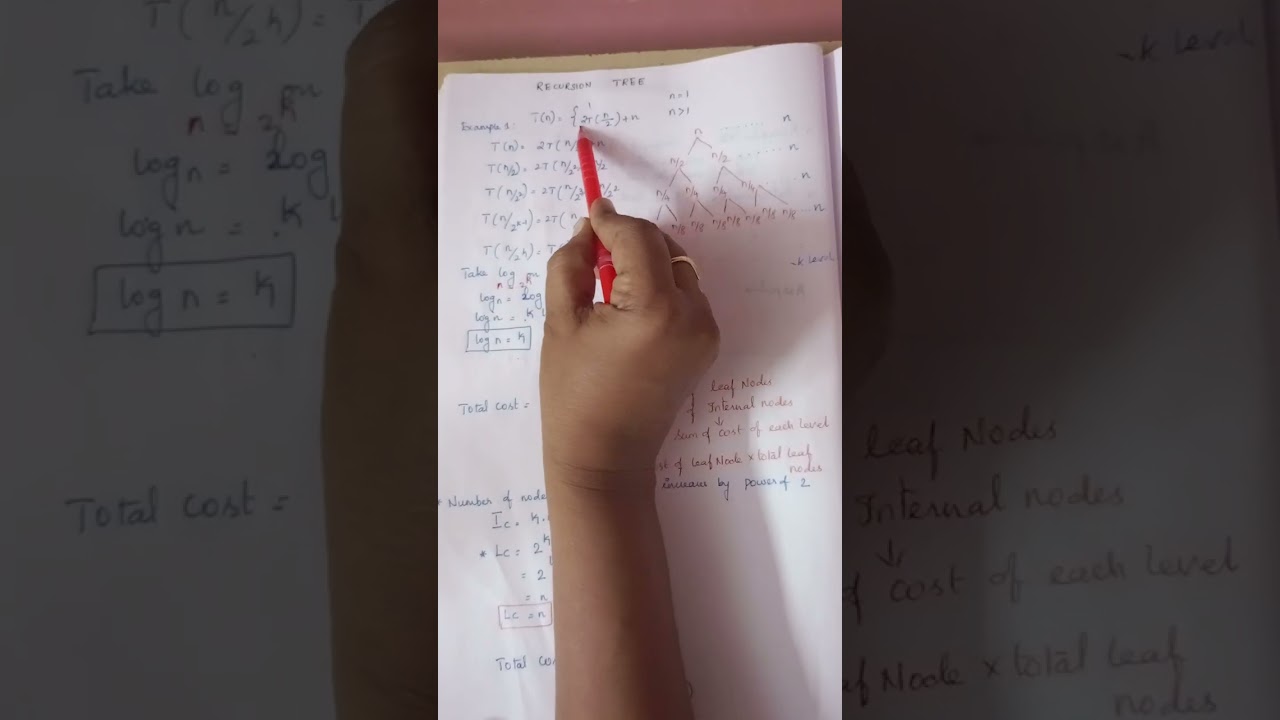 RECURSION TREE
Example 1: T(n) = { 1 n=1
2T(n/2)+n n>1
T(n) = 2T(n/
T(n/2) = 2T(n/2² n/2
T(n/2²) = 2T(n/2³ n/2²
T(n/2ᵏ⁻¹) = 2T(n
T(n/2k) = T
Take log
n = 2ᵏ
log n = log
log n = k
log n = k
n ...... n
n/2 n/2 ...... n
n/4 n/4 n/4 n/4 ..... n
n/8 n/8 n/8 n/8 n/8 n/8 n/8 .... n
k level
Total cost = leaf Nodes
Internal nodes
↓
sum of cost of each level
st of leaf Node × total leaf
nodes
* Number of node increases by power of 2
Ic = k.
* Lc = 2ᵏ
= 2
= n
Lc = n
Total cos